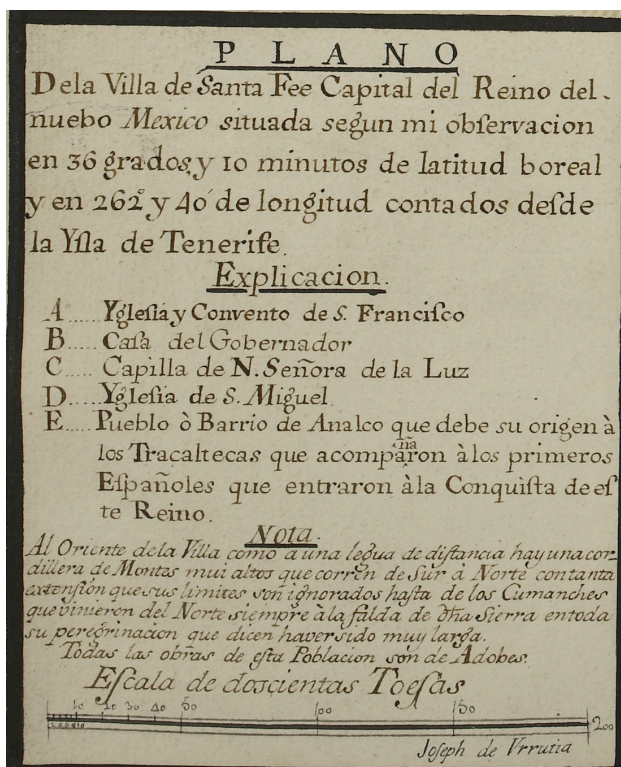 PLANO
Dela Villa de Santa Fee Capital del Reino del
nuebo Mexico situada segun mi obſervacion
en 36 grados, y 10 minutos de latitud boreal
y en 262° y 40' de longitud contados deſde
la Yſla de Tenerife.
Explicacion.
A..... Ygleſia y Convento de S. Franciſco
B..... Caſa del Gobernador
C..... Capilla de N. Señora de la Luz
D..... Ygleſia de S. Miguel.
E..... Pueblo ò Barrio de Analco que debe su origen à
los Tracaltecas que acompañaron à los primeros
Eſpañoles que entraron à la Conquiſta de eſ
te Reino.
Nota.
Al Oriente dela Villa como a una legua de diſtancia hay una cor
dillera de Montes mui altos que corren de Sur à Norte con tanta
extensión que sus limites son ignorados haſta de los Cumanches
que vinieron del Norte siempre à la falda de dha Sierra en toda
su peregrinacion que dicen haver sido muy larga.
Todas las obras de eſta Poblacion son de Adobes.
Eſcala de doscientas Toeſas
10 20 30 40 50 100 150 200
Joſeph de Vrrutia